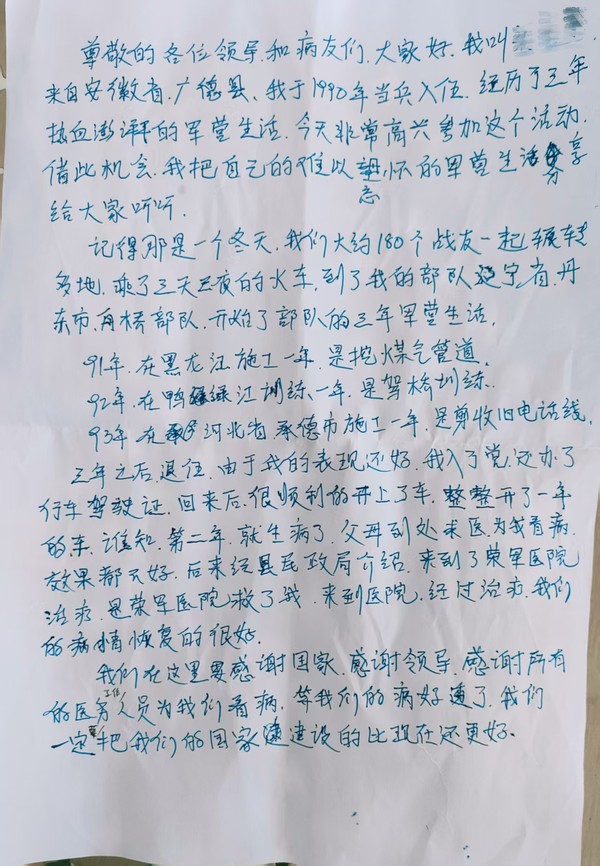 尊敬的各位领导和病友们，大家好，我叫
来自安徽省，广德县、我于1990年当兵入伍，经历了三年
热血澎湃的军营生活，今天非常高兴参加这个活动，
借此机会，我把自己的难以忘怀的军营生活分享
给大家听听。
记得那是一个冬天，我们大约180个战友一起辗转
多地，乘了三天三夜的火车，到了我的部队辽宁省，丹
东市，舟桥部队，开始了部队的三年军营生活，
91年，在黑龙江施工一年，是挖煤气管道。
92年，在鸭绿江训练一年，是架桥训练。
93年在河北省承德市施工一年，是剪收旧电话线，
三年之后，退伍，由于我的表现还好，我入了党，还办了
行车驾驶证，回来后，很顺利的开上了车，整整开了一年
的车，谁知，第二年，就生病了，父母到处求医，为我看病，
效果都不好，后来经县民政局介绍，来到了荣军医院
治疗，是荣军医院救了我，来到医院，经过治疗，我们
的病情恢复的很好。
我们在这里要感谢国家，感谢领导，感谢所有
的医务工作人员为我们看病，等我们的病好了，我们
一定要把我们的国家建设的比现在还更好。